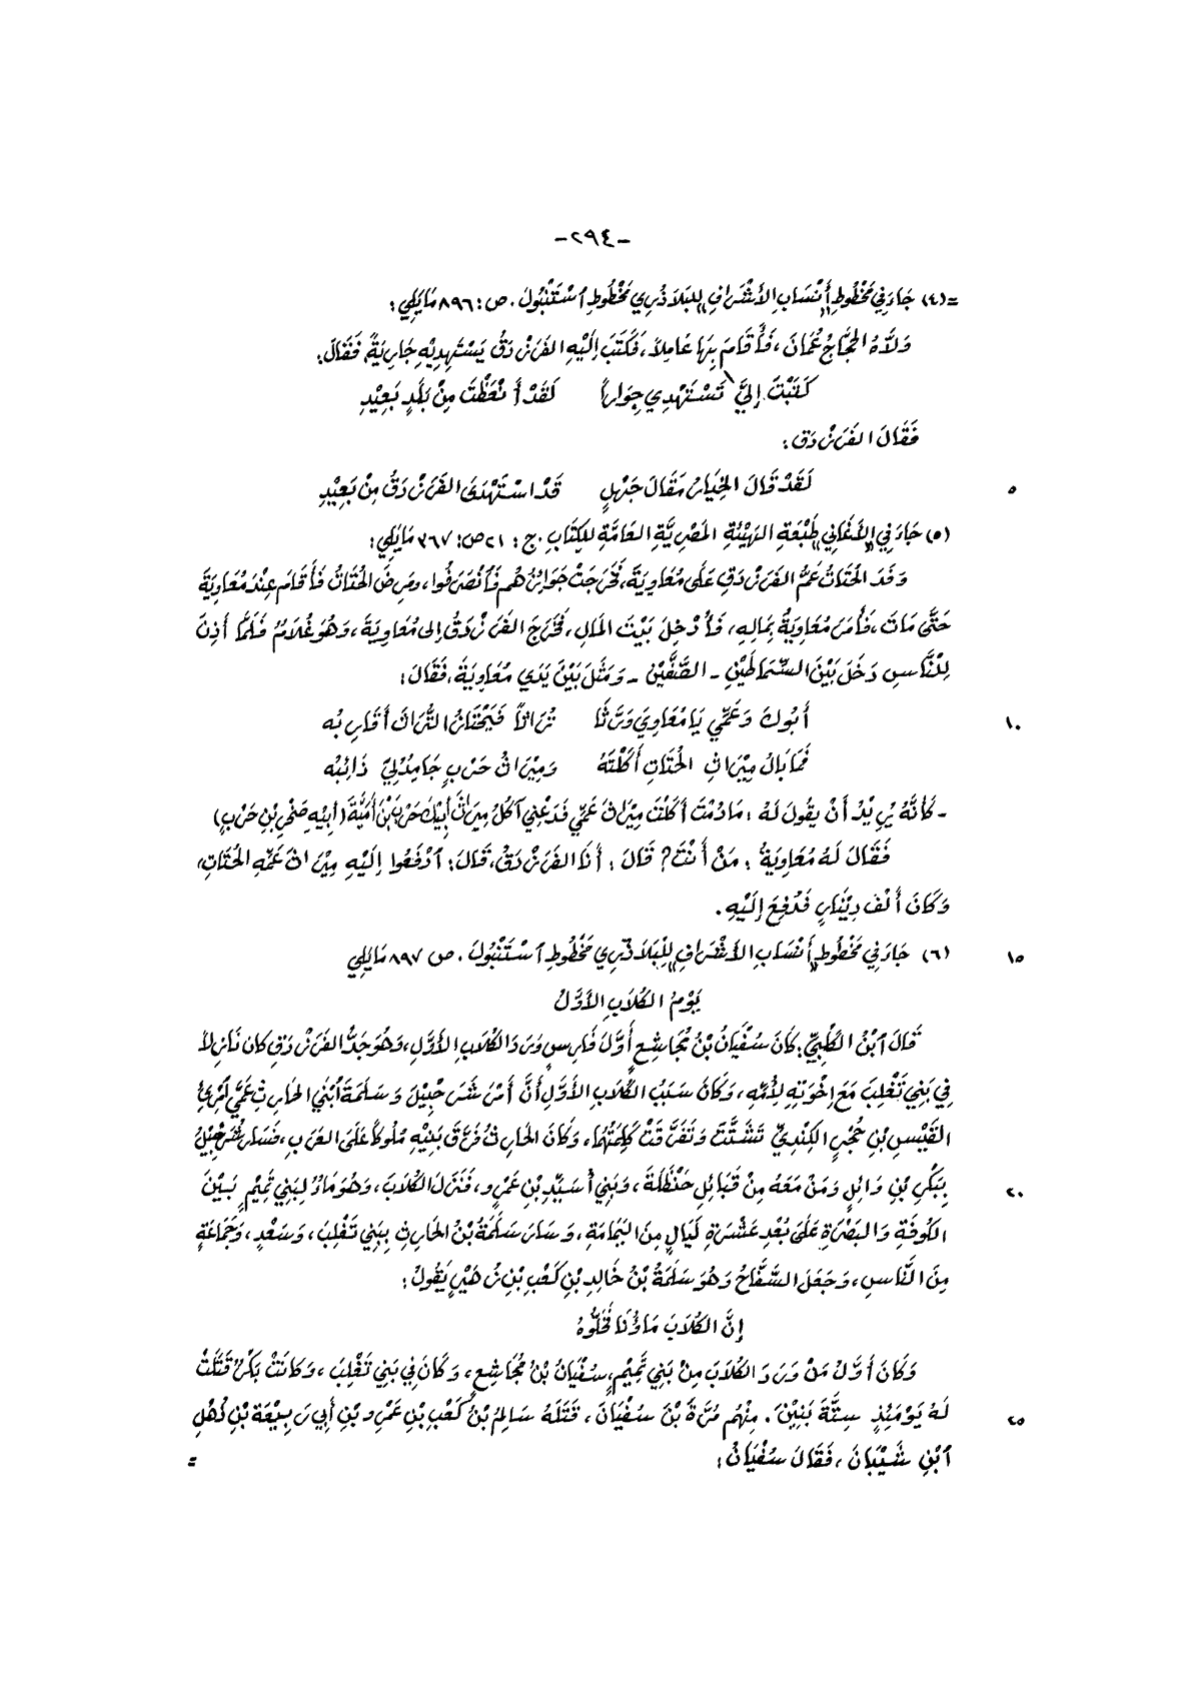 -٢٩٤-
=(٤) جَاءَ فِي مَخْطُوطِ «أَنْسَابِ الأَشْرَافِ» لِلبَلَاذُرِي مَخْطُوطِ ٱسْتَنْبُولَ. ص: ٨٩٦ مَا يَلِي:
وَلَّاهُ الحَجَّاجُ عُمَانَ، فَأَقَامَ بِهَا عَامِلاً، فَكَتَبَ إِلَيْهِ الفَرَزْدَقُ يَسْتَهْدِيْهِ جَارِيَةً، فَقَالَ:
كَتَبْتَ إِلَيَّ تَسْتَهْدِي جِوَاراً لَقَدْ أَنْعَظْتَ مِنْ بَلَدٍ بَعِيْدِ
فَقَالَ الفَرَزْدَق:
٥ لَقَدْ قَالَ الخِيَارُ مَقَالَ جَهْلٍ قَدْ اسْتَهْدَى الفَرَزْدَقُ مِنْ بَعِيْدِ
(٥) جَاءَ فِي «الأَغَانِي» طَبْعَةِ الهَيْئَةِ المَصْرِيَّةِ العَامَّةِ لِلكِتَابِ. ج: ٢١ ص: ٣٦٧ مَا يَلِي:
وَفَدَ الحُتَاتُ عَمُّ الفَرَزْدَقِ عَلَى مُعَاوِيَةَ، فَخَرَجَتْ جَوَائِزُهُم فَٱنْصَرَفُوا، وَمَرِضَ الحُتَاتُ فَأَقَامَ عِنْدَ مُعَاوِيَةَ
حَتَّى مَاتَ، فَأَمَرَ مُعَاوِيَةُ بِمَالِهِ، فَأُدْخِلَ بَيْتَ المَالِ، فَخَرَجَ الفَرَزْدَقُ إِلى مُعَاوِيَةَ، وَهُوَ غُلَامٌ فَلَمَّا أَذِنَ
لِلنَّاسِ دَخَلَ بَيْنَ السِّمَاطَيْنِ - الصَّفَّيْنِ - وَمَثَلَ بَيْنَ يَدَي مُعَاوِيَةَ، فَقَالَ:
١٠ أَبُوكَ وَعَمِّي يَا مُعَاوِيَ وَرَّثَا تُرَاثاً فَيَحْتَازُ التُّرَاثَ أَقَارِبُه
فَمَا بَالُ مِيْرَاثِ الحُتَاتِ أَكَلْتَهُ وَمِيْرَاثُ حَرْبٍ جَامِدٌ لِيْ ذَائِبُه
- كَأَنَّهُ يُرِيْدُ أَنْ يَقُولَ لَهُ: مَا دُمْتَ أَكَلْتَ مِيْرَاثَ عَمِّي فَدَعْنِي آكُلُ مِيرَاثَ أَبِيْكَ حَرْبَ بْنَ أُمَيَّةَ (أَبِيْهِ صَخْرِ بْنِ حَرْبٍ)
فَقَالَ لَهُ مُعَاوِيَةُ: مَنْ أَنْتَ؟ قَالَ: أَنَا الفَرَزْدَقُ، قَالَ: ٱدْفَعُوا إِلَيْهِ مِيْرَاثَ عَمِّهِ الحُتَاتِ،
وَكَانَ أَلْفَ دِيْنَارٍ فَدُفِعَ إِلَيْهِ.
١٥ (٦) جَاءَ فِي مَخْطُوطِ «أَنْسَابِ الأَشْرَافِ» لِلْبَلَاذُرِي مَخْطُوطِ ٱسْتَنْبُولَ. ص ٨٩٧ مَا يَلِي
يَوْمُ الكُلَابِ الأَوَّلُ
قَالَ ٱبْنُ الكَلْبِيِّ: كَانَ سُفْيَانُ بْنُ مُجَاشِعٍ أَوَّلَ فَارِسٍ وَرَدَ الكُلَابَ الأَوَّلِ، وَهُوَ جَدُّ الفَرَزْدَقِ كَانَ نَازِلاً
فِي بَنِي تَغْلِبَ مَعَ إِخْوَتِهِ لِأُمِّهِ، وَكَانَ سَبَبُ الكُلَابِ الأَوَّلِ أَنَّ أَمْرَ شَرَحْبِيْلَ وَسَلَمَةَ ٱبْنَي الحَارِثِ عَمَّي ٱمْرِئِ
القَيْسِ بْنِ حُجْرٍ الكِنْدِيِّ تَشَتَّتَ وَتَفَرَّقَتْ كَلِمَتُهُمَا، وَكَانَ الحَارِثُ فَرَّقَ بَنِيْهِ مُلُوكاً عَلَى العَرَبِ، فَسَارَ شُرَحْبِيْلُ
٢٠ بِبَكْرِ بْنِ وَائِلٍ وَمَنْ مَعَهُ مِنْ قَبَائِلِ حَنْظَلَةَ، وَبَنِي أَسَيِّدِ بْنِ عَمْرٍو، فَنَزَلَ الكُلَابَ، وَهُوَ مَاءٌ لِبَنِي تَمِيْمٍ بَيْنَ
الكُوفَةِ وَالبَصْرَةِ عَلَى بُعْدِ عَشْرَةِ لَيَالٍ مِنَ اليَمَامَةِ، وَسَارَ سَلَمَةُ بْنُ الحَارِثِ بِبَنِي تَغْلِبَ، وَسَعْدٍ، وَجَمَاعَةٍ
مِنَ النَّاسِ، وَجَعَلَ السَّفَّاحُ وَهُوَ سَلَمَةُ بْنُ خَالِدِ بْنِ كَعْبِ بْنِ زُهَيْرٍ يَقُولُ:
إِنَّ الكُلَابَ مَاؤُنَا فَخَلُّوهُ
وَكَانَ أَوَّلُ مَنْ وَرَدَ الكُلَابَ مِنْ بَنِي تَمِيْمٍ، سُفْيَانُ بْنُ مُجَاشِعٍ، وَكَانَ فِي بَنِي تَغْلِبَ، وَكَانَتْ بَكْرٌ قَتَلَتْ
٢٥ لَهُ يَوْمَئِذٍ سِتَّةَ بَنِيْنَ. مِنْهُم مُرَّةُ بْنُ سُفْيَانَ، قَتَلَهُ سَالِمُ بْنُ كَعْبِ بْنِ عَمْرِو بْنِ أَبِي رَبِيْعَةَ بْنِ ذُهْلِ
ٱبْنِ شَيْبَانَ، فَقَالَ سُفْيَانُ: =